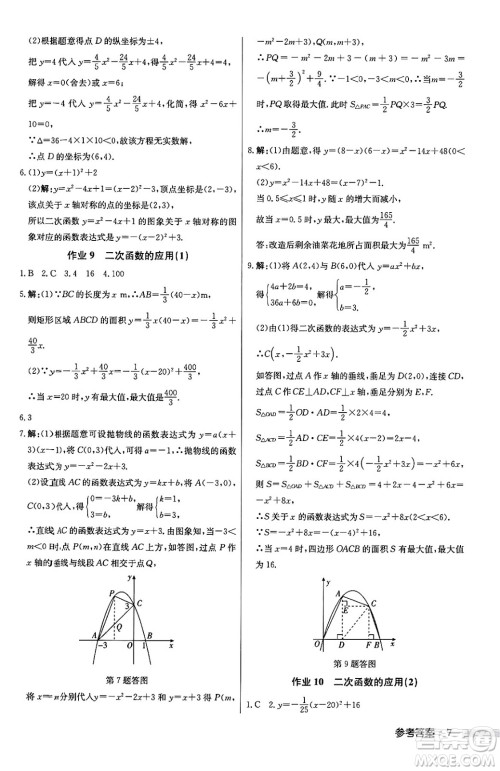 (2)根据题意得点 D 的纵坐标为±4,
把 y=4代入 y=4/5x²-24/5x+4,得 4/5x²-24/5x+4=4,
解得 x=0(舍去)或 x=6;
把 y=-4 代入 y=4/5x²-24/5x+4,化简,得 x²-6x+10=0.
∵Δ=36-4×1×10<0,故该方程无实数解,
∴点 D 的坐标为(6,4).
6.(1)y=(x+1)²+2
(2)解:∵y=x²-4x+1=(x-2)²-3,
∴顶点关于 x 轴对称的点的坐标为(2,3),
所以二次函数 y=x²-4x+1 的图象关于 x 轴对称的图象对应的函数表达式为 y=-(x-2)²+3.
作业 9 二次函数的应用(1)
1.B 2.C 3.4 16 4.100
5.解:(1)∵BC 的长度为 x m,∴AB=1/3(40-x)m,
则矩形区域 ABCD 的面积 y=1/3x(40-x)=-1/3x²+40/3x.
(2)∵y=-1/3x²+40/3x=-1/3(x-20)²+400/3,
∴当 x=20 时,y 有最大值,最大值是 400/3.
6.3
7.解:(1)根据题意可设抛物线的函数表达式为 y=a(x+3)(x-1),将 C(0,3)代入,得 a=-1,∴抛物线的函数表达式为 y=-x²-2x+3.
(2)设直线 AC 的函数表达式为 y=kx+b,将 A(-3,0),
C(0,3)代入,得{0=-3k+b, 3=b, 解得{k=1, b=3.
∴直线 AC 的函数表达式为 y=x+3.由题意知,当-3<m<0 时,点 P(m,n)在直线 AC 的上方,如答图,过点 P 作 x 轴的垂线与线段 AC 相交于点 Q.
y P 3 C Q A -3 O 1 B x
第 7 题答图
将 x=m分别代入 y=-x²-2x+3 和 y=x+3,得 P(m,
-m²-2m+3),Q(m,m+3).
∴PQ=-m²-2m+3-(m+3)=-m²-3m=-(m+3/2)²+9/4.∵-3<m<0,∴当 m=-3/2时,PQ取得最大值,此时 S△PAC=1/2PQ×3=3/2PQ最大,
∴m=-3/2.
8.解:(1)由题意,得 y=(8-x)(6-x)=x²-14x+48(0<x<6).
(2)y=x²-14x+48=(x-7)²-1,
当 0.5≤x≤1 时,y 随 x 的增大而减小,
故当 x=0.5 时,y 取得最大值,为 165/4.
答:改造后剩余油菜花地所占面积的最大值为 165/4 m².
9.解:(1)将 A(2,4)与 B(6,0)代入 y=ax²+bx,
得{4a+2b=4, 36a+6b=0, 解得{a=-1/2, b=3.
(2)由(1)得二次函数的表达式为 y=-1/2x²+3x,
∴C(x,-1/2x²+3x).
如答图,过点 A 作 x 轴的垂线,垂足为 D(2,0),连接 CD,过点 C 作 CE⊥AD,CF⊥x 轴,垂足分别为 E,F.
S△OAD=1/2OD·AD=1/2×2×4=4,
S△ACD=1/2AD·CE=1/2×4×(x-2)=2x-4,
S△BCD=1/2BD·CF=1/2×4×(-1/2x²+3x)=-x²+6x,
则 S=S△OAD+S△ACD+S△BCD=4+2x-4-x²+6x=-x²+8x.
∴S 关于 x 的函数表达式为 S=-x²+8x(2<x<6).
∵S=-x²+8x=-(x-4)²+16,
∴当 x=4 时,四边形 OACB 的面积 S 有最大值,最大值为 16.
y A E C O D F B x
第 9 题答图
作业 10 二次函数的应用(2)
1.C 2.y=-1/25(x-20)²+16
参考答案 7